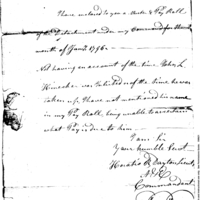 I have inclosed to you a Muster & Pay Roll
of the Detachment under my Command for the
month of Jany 1796.
Not having an account of the time
was inlisted or of the time he was
taken up, I have not mentioned his name
in my Pay Roll, being unable to
what Pay is due to him
I am Sir
Your humble Servt
Horatio R Dayton Lieut.
Commandant